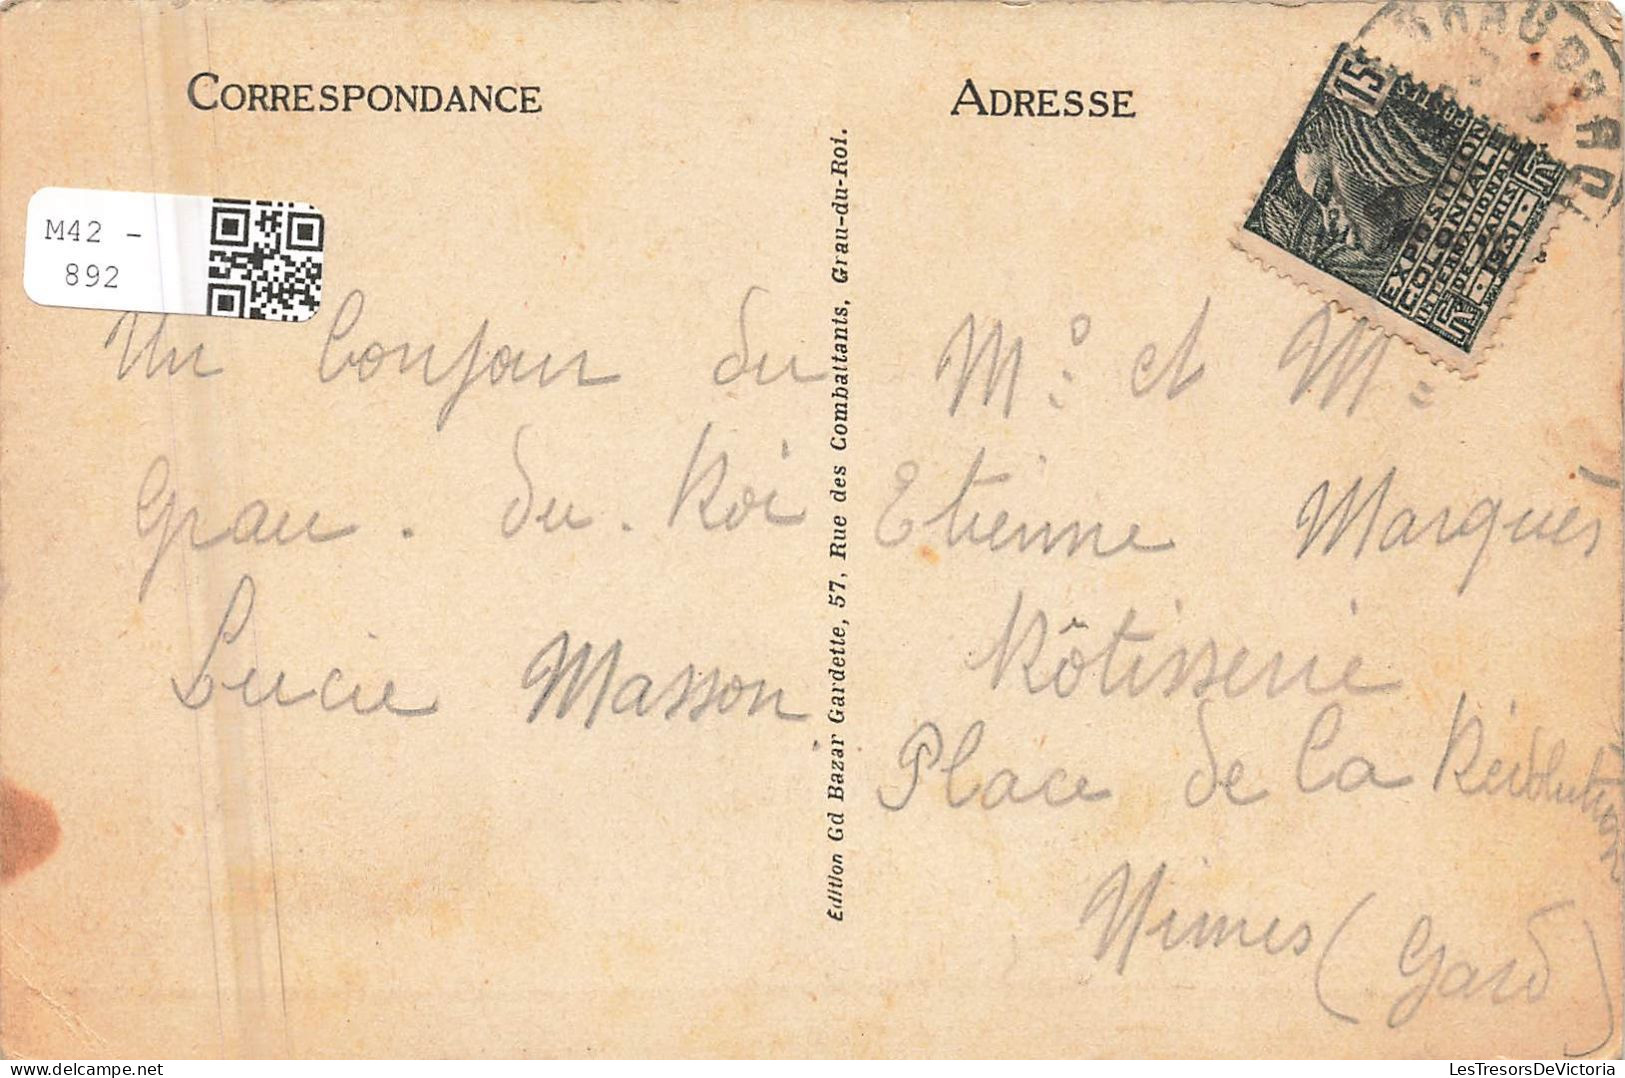 CORRESPONDANCE
M42 -
892
Un bonjour du
Grau. du. Roi
Lucie Masson
Edition Gd Bazar Gardette, 57, Rue des Combattants, Grau-du-Roi.
ADRESSE
15
POSTES
EXPOSITION
COLONIALE
INTERNATIONALE
DE PARIS
1931
RF
RF
Mr et Me
Etienne Marquès
Rôtisserie
Place de la Révolution
Nimes (Gard)
LesTresorsDeVictoria